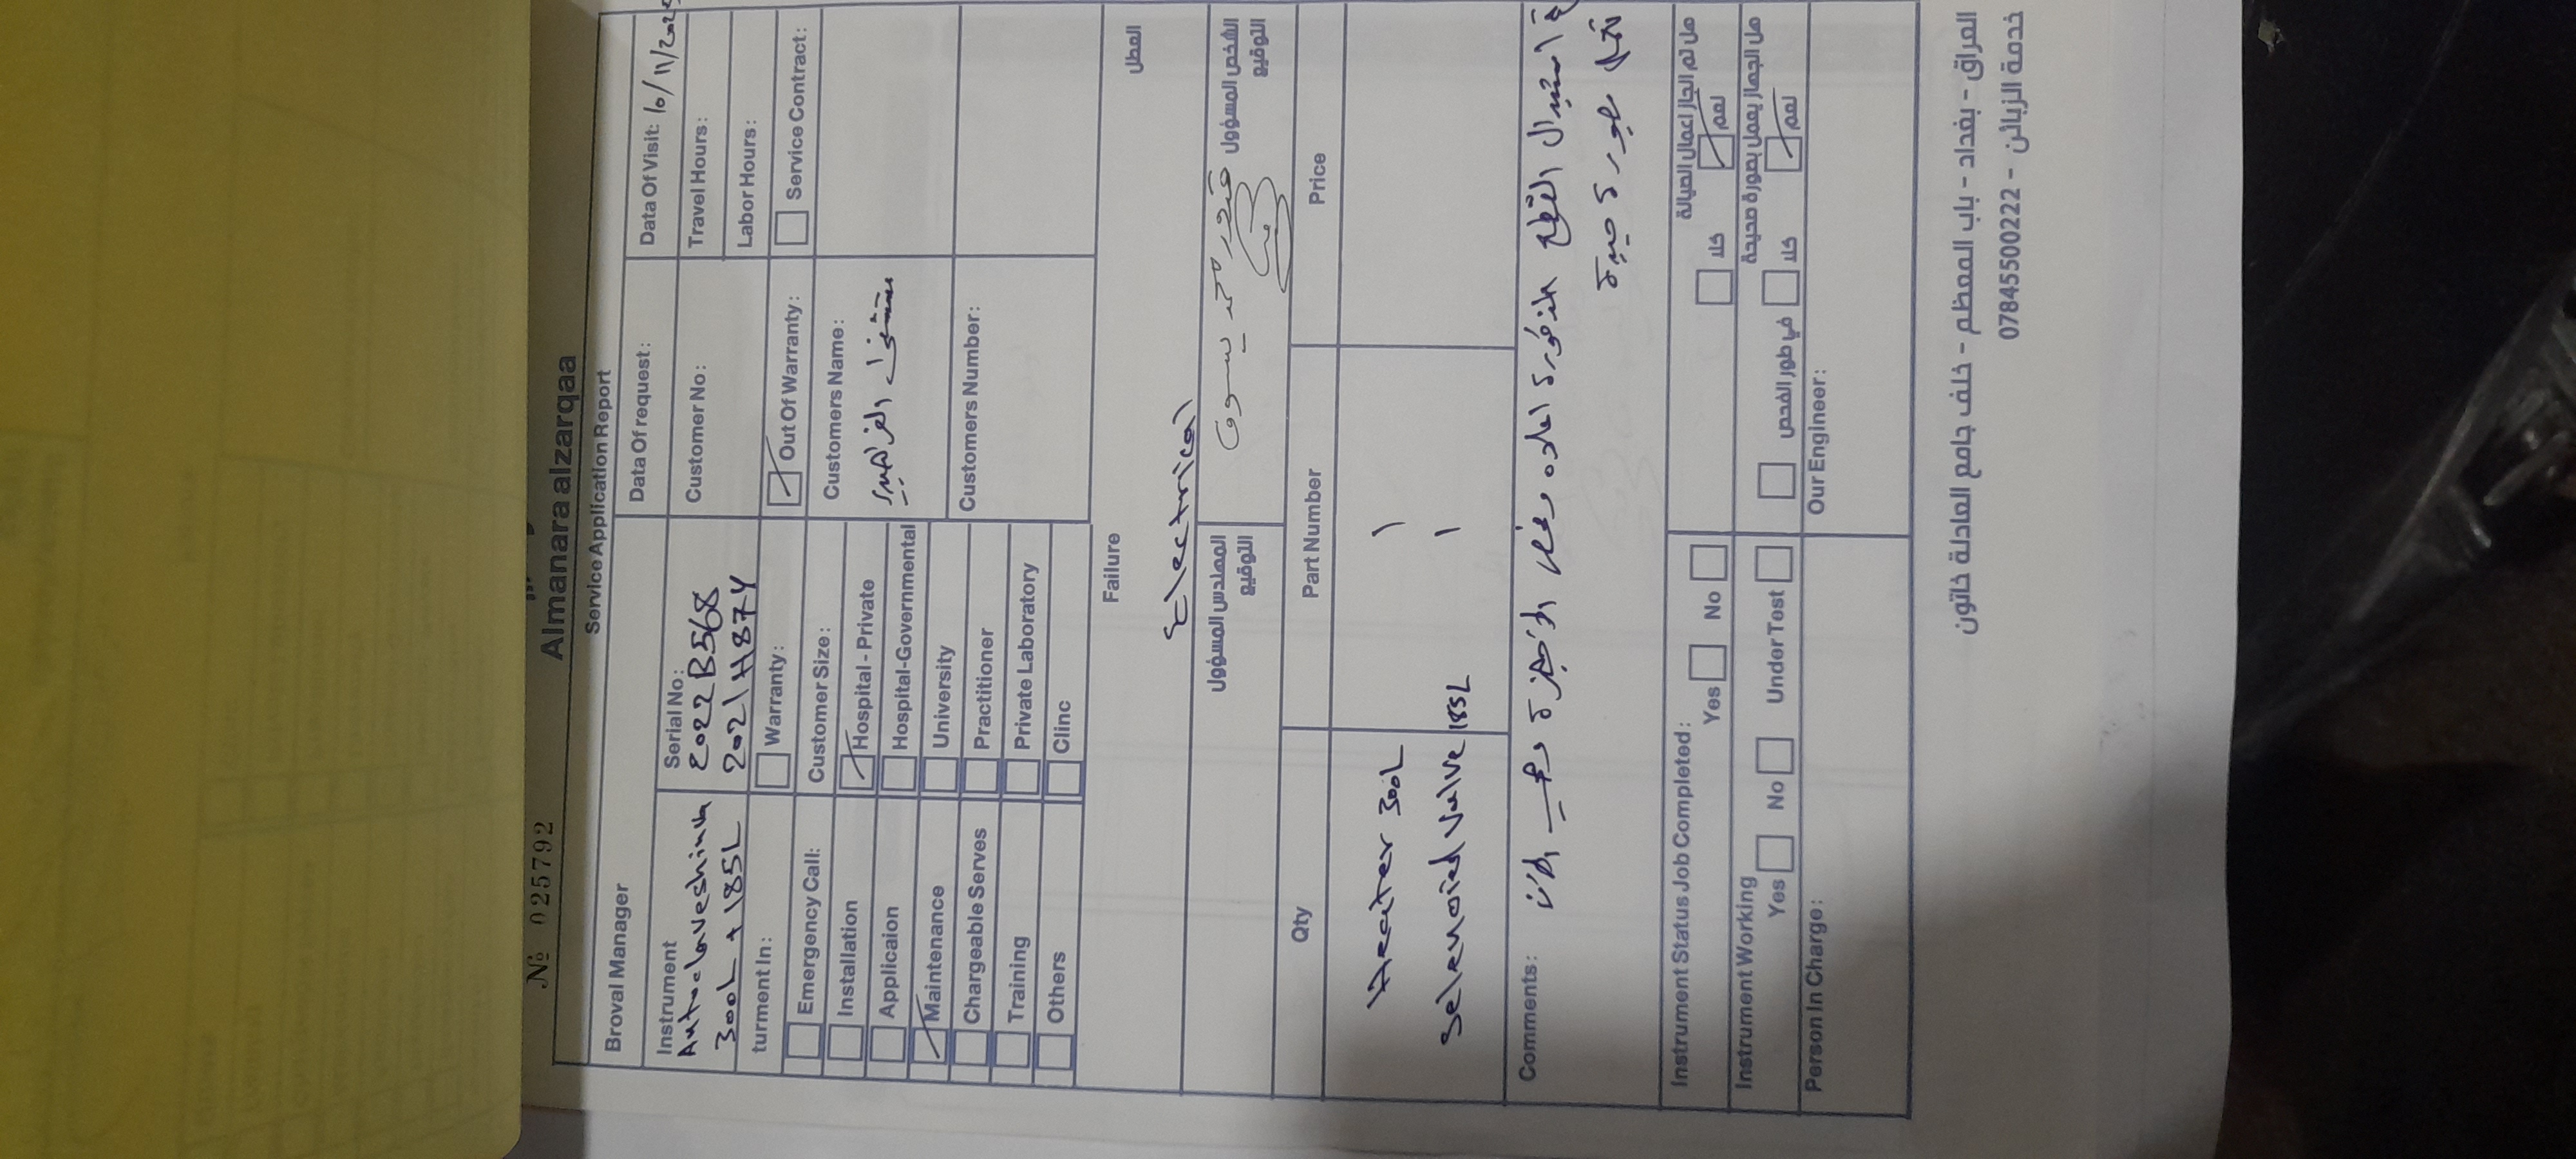 № 025792
Almanara alzarqaa
Service Application Report
Broval Manager
Data Of request:
Data Of Visit: 10/11/202
Instrument
Autoclaveshinva
300L + 185L
Serial No:
2022B568
2021H874
Customer No:
Travel Hours:
Labor Hours:
turment In:
Warranty:
Out Of Warranty:
Service Contract:
Emergency Call:
Installation
Applicaion
Maintenance
Chargeable Serves
Training
Others
Customer Size:
Hospital - Private
Hospital-Governmental
University
Practitioner
Private Laboratory
Clinc
Customers Name:
مستشفى الفراهيدي
Customers Number:
Failure
العطل
Electrical
المهندس المسؤول
التوقيع
الشخص المسؤول
التوقيع
Qty
Part Number
Price
Heater 300L
1
Selenoied Valve 185L
1
Comments:
استبدال القطع المذكورة اعلاه وفحص الاجهزة وهي الان
تعمل بصورة جيدة
Instrument Status Job Completed:
Yes
No
هل تم انجاز اعمال الصيانة
كلا
نعم
Instrument Working
Yes
No
Under Test
هل الجهاز يعمل بصورة صحيحة
في طور الفحص
كلا
نعم
Person In Charge:
Our Engineer:
العراق - بغداد - باب المعظم - خلف جامع العادلة خاتون
خدمة الزبائن - 07845500222